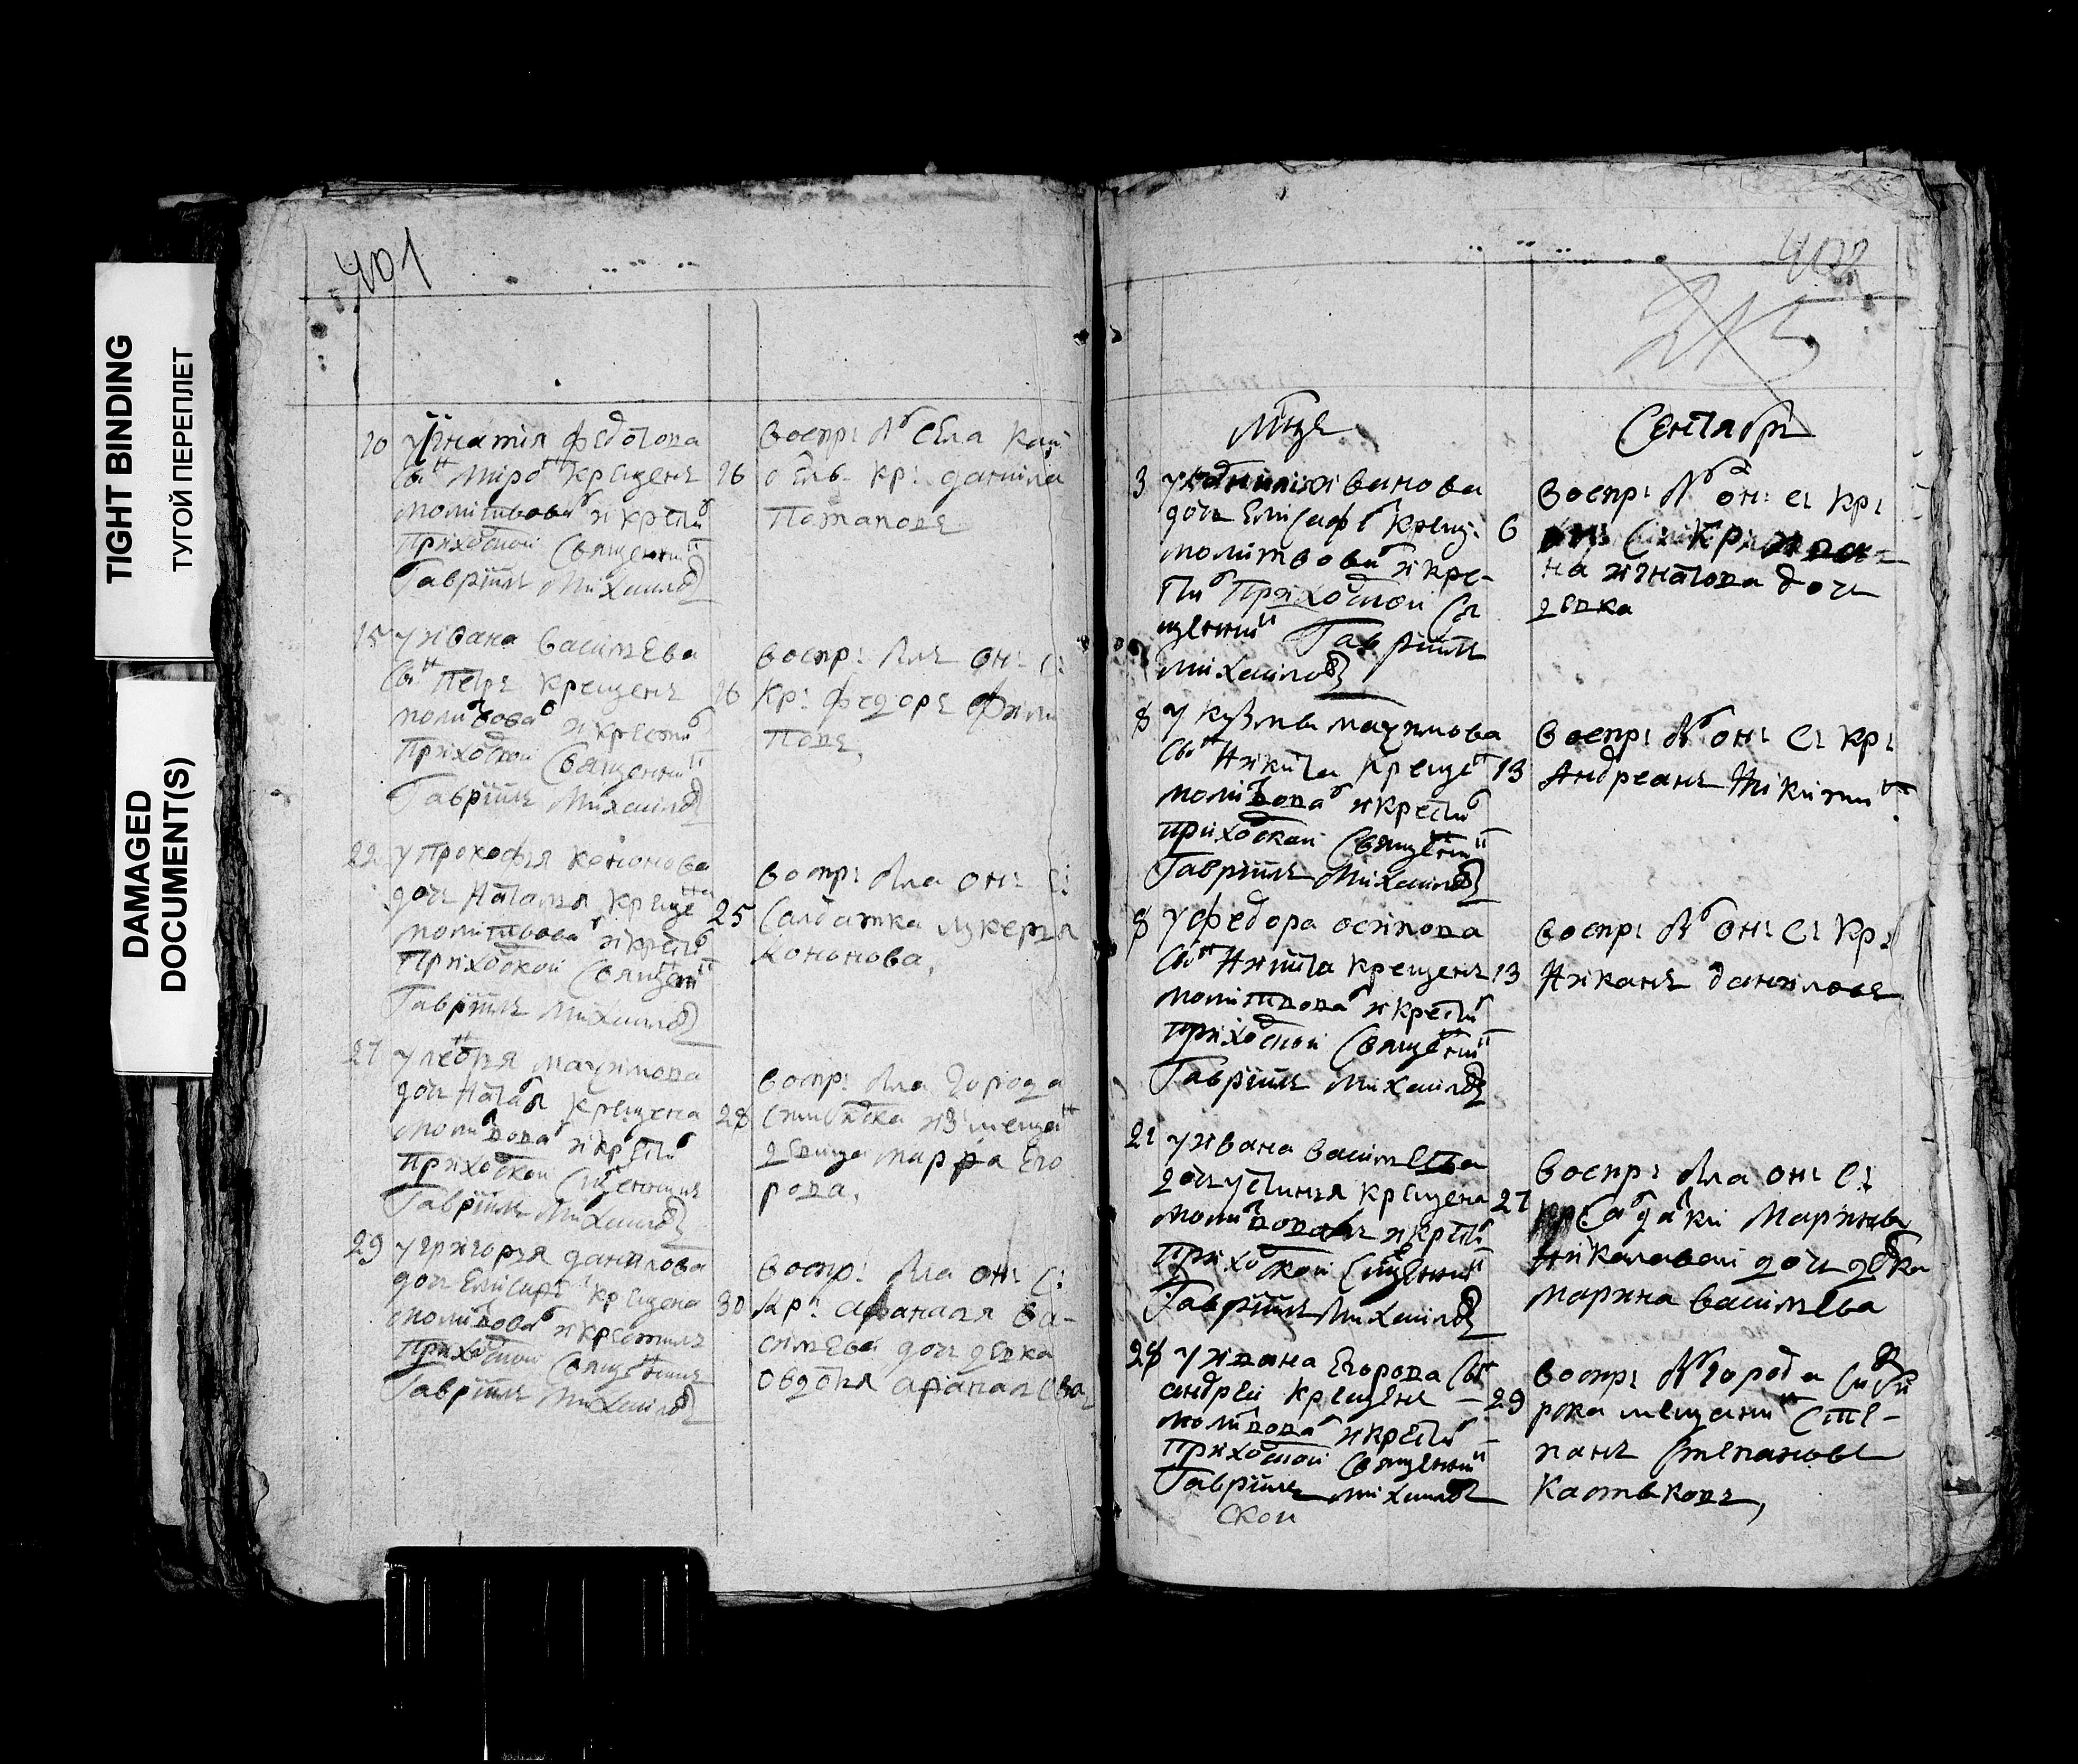 TIGHT BINDING
ТУГОЙ ПЕРЕПЛЕТ
DAMAGED
DOCUMENT(S)
401
10 У Игнатія федотова
сынъ крещенъ
молитвовалъ и крестилъ
Приходской Священникъ
Гавріилъ Михаиловъ
16
воспр: былъ села
кр: данила
Потаповъ
15 У ивана васильева
сынъ Петръ крещенъ
молитвовалъ и крестилъ
Приходской Священникъ
Гавріилъ Михаиловъ
16
воспр: былъ он: с:
кр: федоръ фили
повъ
22 У Прокофья кононова
дочь Наталья крещена
молитвовалъ и крестилъ
Приходской Священникъ
Гавріилъ Михаиловъ
25
воспр: была он: с:
Салдатка лукерья
Кононова,
27 У максимова
дочь Наталья крещена
молитвовалъ и крестилъ
Приходской Священникъ
Гавріилъ Михаиловъ
28
воспр: была города
Симбирска из мещанъ
девица марфа Его
рова,
29 У григорья данилова
дочь Елисаветъ крещена
молитвовалъ и крестилъ
Приходской Священникъ
Гавріилъ Михаиловъ
30
воспр: была он: с:
кр: афанасья ва-
сильева дочь девка
овдотья афанасьева
402
215
Мцъ Сентябрь
3 У иванова
дочь Елисафетъ крещ:
молитвовалъ и кре-
стилъ Приходской Свя
щенникъ Гавріилъ
Михаиловъ
6
воспр: былъ он: с: кр:
на игнатова дочь
девка
8 У кузьмы максимова
сынъ Никита крещенъ
молитвовалъ и крестилъ
приходской Священникъ
Гавріилъ Михаиловъ
13
воспр: былъ он: с: кр:
Андреанъ Никитинъ
8 У федора осипова
сынъ Никита крещенъ
молитвовалъ и крестилъ
приходской Священникъ
Гавріилъ Михаиловъ
13
воспр: былъ он: с: кр:
Никанъ даниловъ
21 У ивана васильева
дочь устинья крещена
молитвовалъ и крестилъ
Приходской Священникъ
Гавріилъ Михаиловъ
27
воспр: была он: с:
Салдатки Марины
Николаевой дочь девка
марина васильева
28 У ивана Егорова сынъ
андрей крещенъ
молитвовалъ и крестилъ
приходской Священникъ
Гавріилъ Михаилов
ской
29
воспр: былъ города Симби
рска мещанинъ Сте-
панъ Степановъ